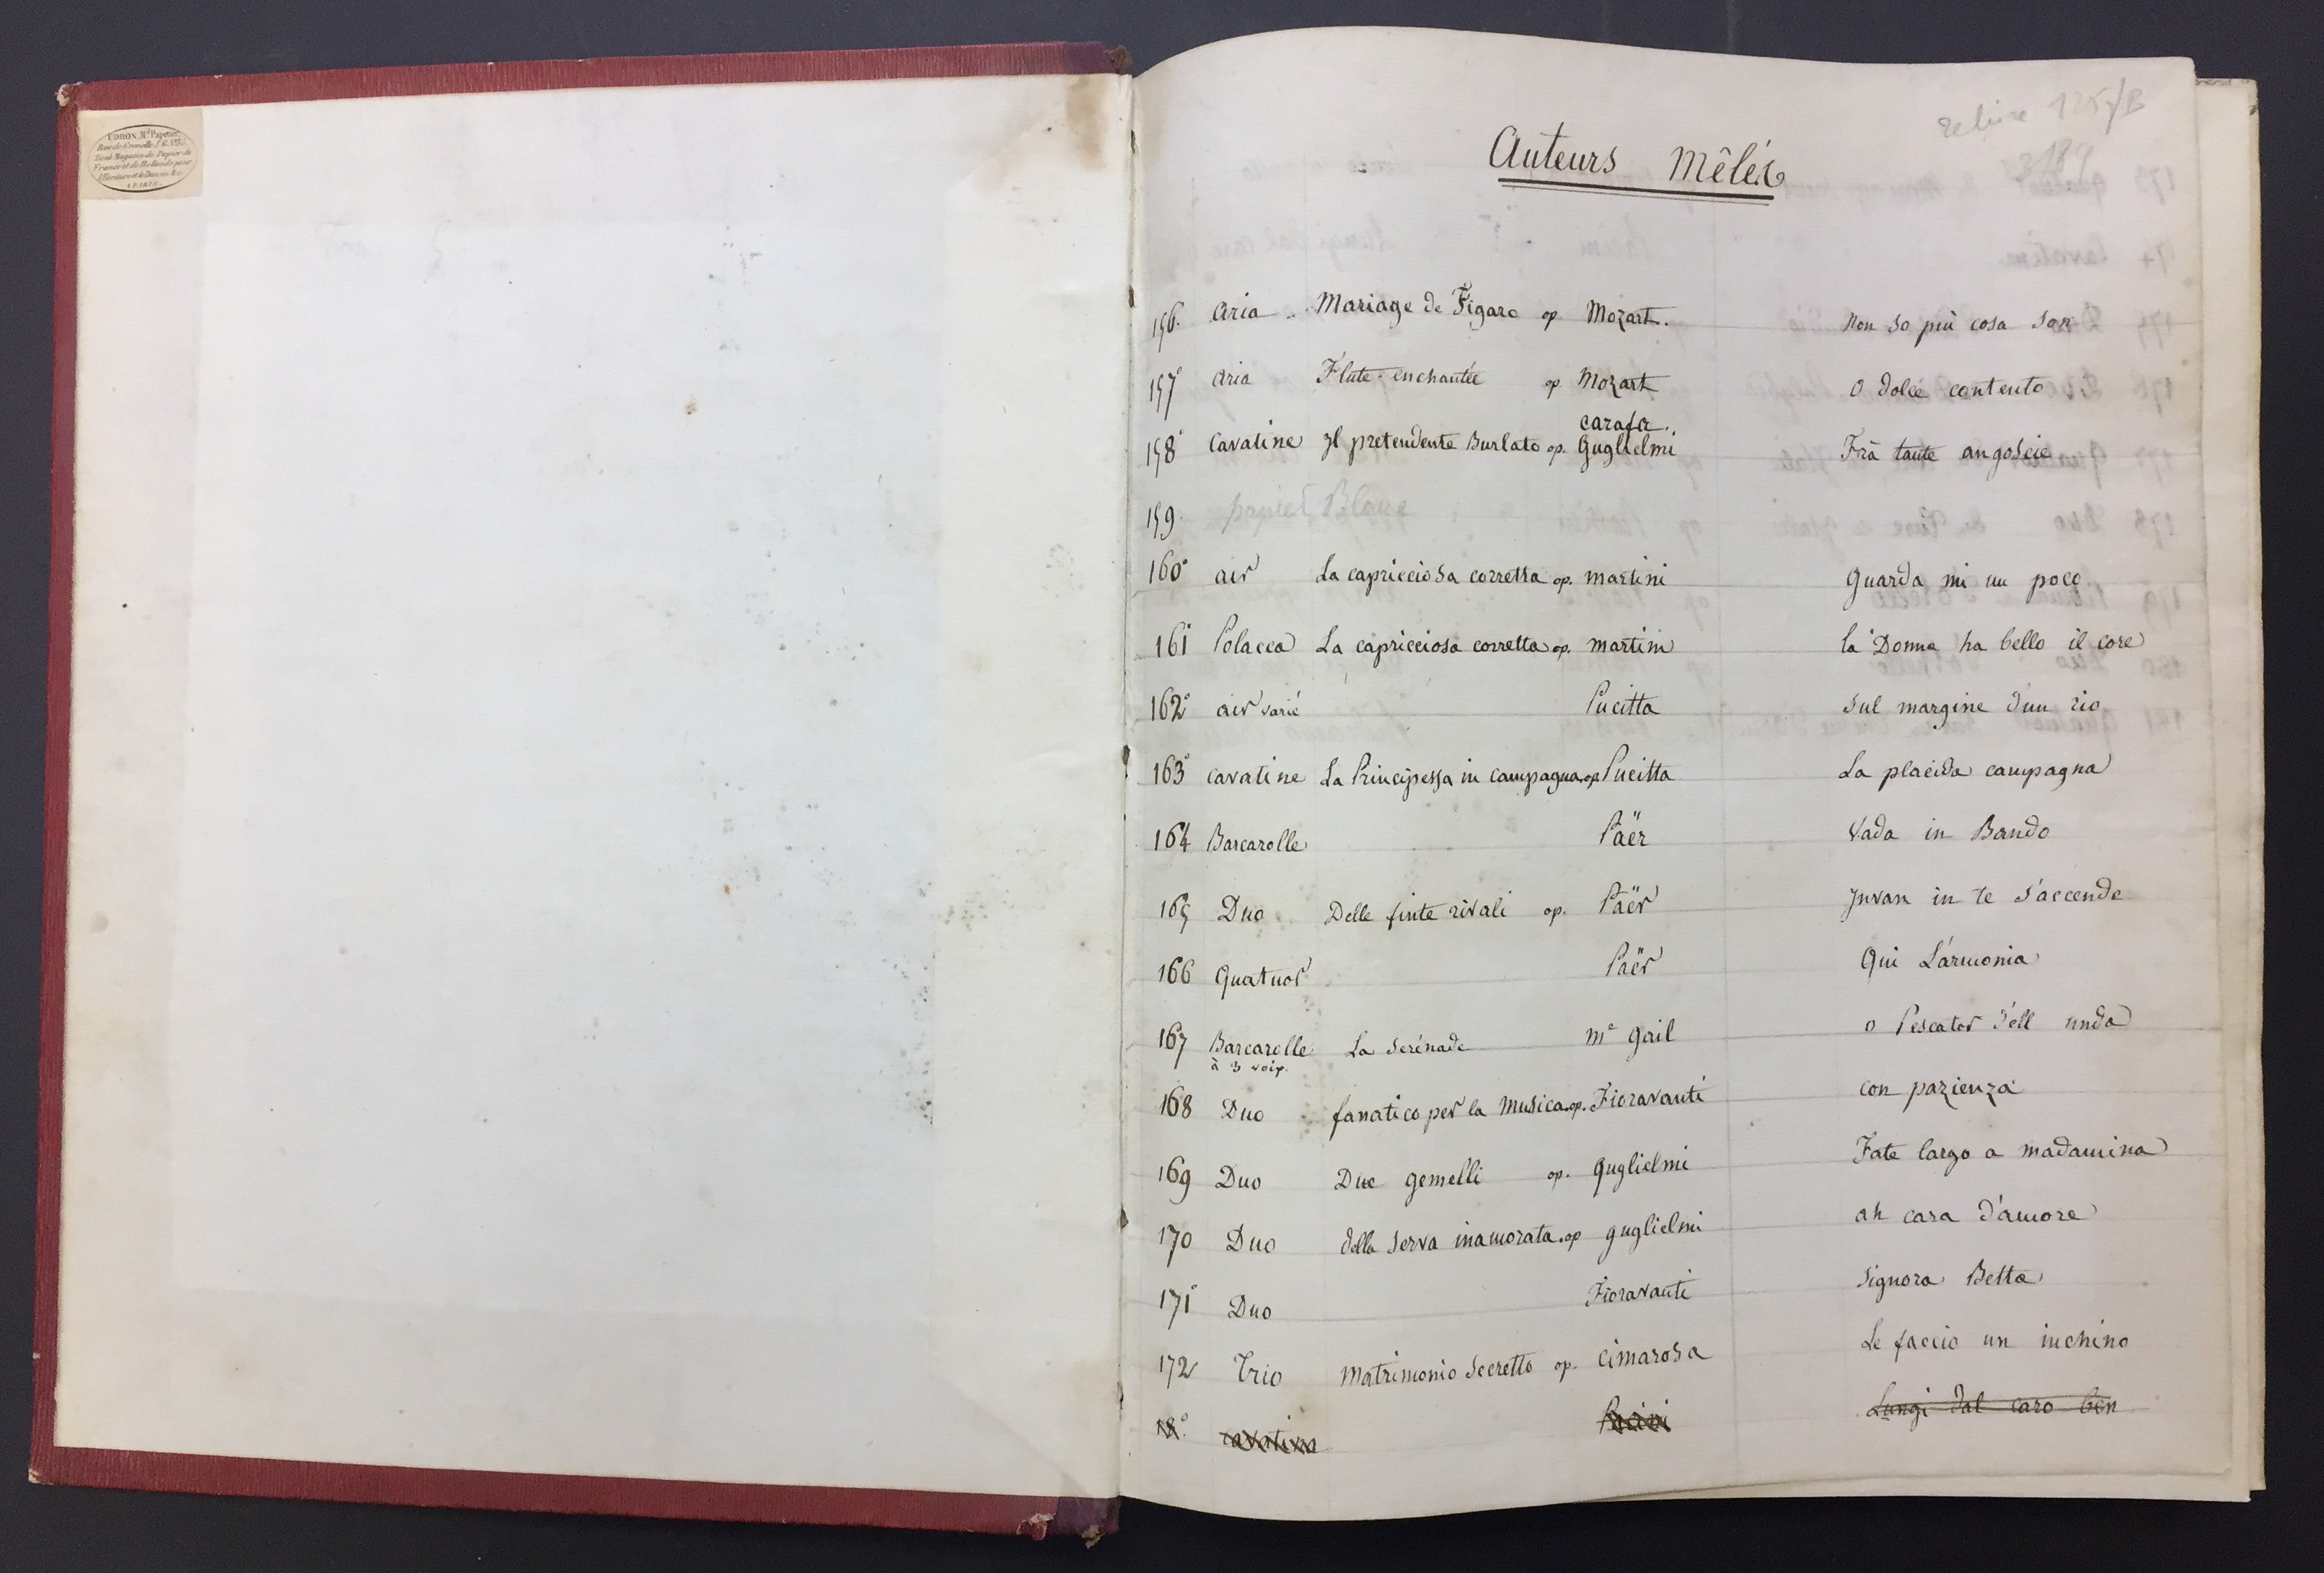 UDRON Md. Papetier,
Rue de Grenelle S. G. No.
Tient Magasin de Papier de
France et de Hollande pour
l'Ecriture et le Dessin &c.
A PARIS.
reliure
Auteurs Mêlés
156. Aria .. Mariage de Figaro op Mozart. Non so più cosa son
157 Aria Flute enchantée op Mozart O dolce contento
carafa.
158 Cavatine Il pretendente Burlato op. Guglielmi Frà tante angoscie
159. papier Blanc
160 air La capricciosa corretta op. martini Guarda mi un poco
161 Polacca La capricciosa corretta op. martini la Donna ha bello il core
162 air varié Pucitta Sul margine d'un rio
163 cavatine La Principessa in campagna op Pucitta La placida campagna
164 Barcarolle Päer Vada in Bando
165 Duo Delle finte rivali op. Päer Invan in te s'accende
166 Quatuor Päer Qui L'armonia
167 Barcarolle La Serénade Me Gail O Pescator d'ell unda
à 3 voix.
168 Duo fanatico per la Musica op. Fioravanti con pazienza
169 Duo Due gemelli op. Guglielmi Fate largo a madamina
170 Duo della Serva inamorata op guglielmi ah cara d'amore
171 Duo Fioravanti Signora Betta
172 Trio Matrimonio Secretto op. Cimarosa Le faccio un inchino
cavatina Pacini Lungi dal caro ben